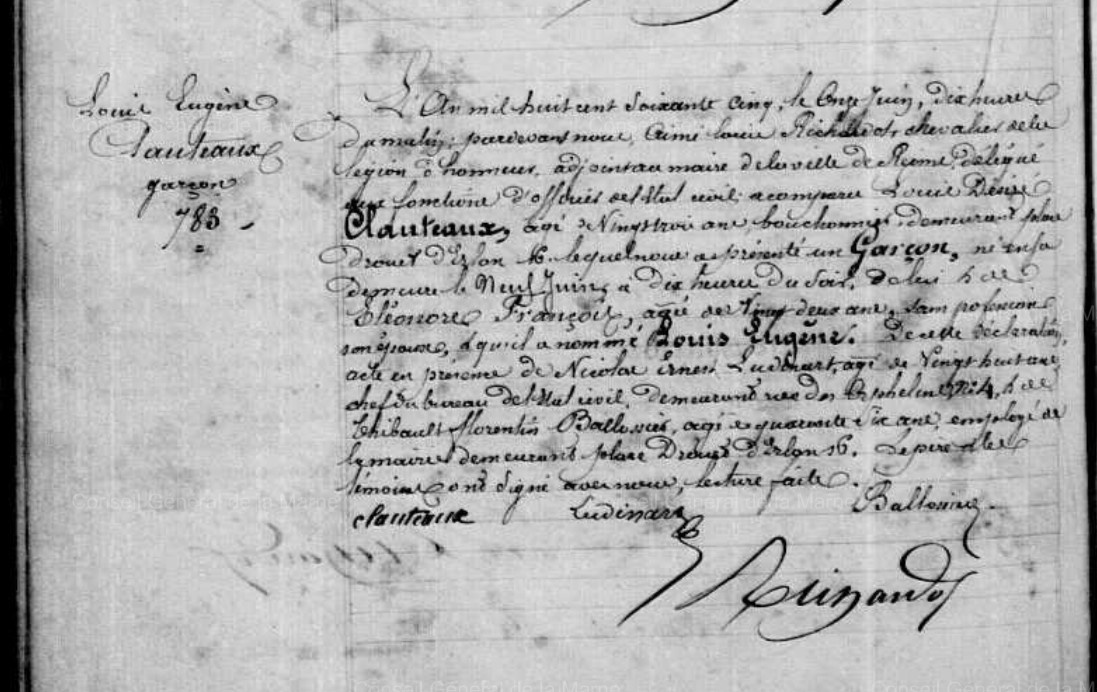 Louis Eugène
Clauteaux
garçon
783
L'An mil huit cent soixante cinq, le Onze Juin, dix heures
du matin; pardevant nous, Aimé Louis chevalier de la
Légion d'honneur, adjoint au maire de la ville de Reims, délégué
aux fonctions d'officier de l'État civil, a comparu Louis Désiré
Clauteaux, âgé de Vingt trois ans, bouchonnier, demeurant place
Drouet d'Erlon 16. lequel nous a présenté un Garçon, né en sa
demeure le Neuf Juin, à dix heures du soir, de lui & de
Eléonore François, âgée de Vingt deux ans, sans profession
son épouse, & qu'il a nommé Louis Eugène. De cette déclaration,
acte en présence de Nicolas Ernest Ludinart, âgé de Vingt huit ans
chef du bureau de l'État civil, demeurant rue des Orphelins, & de
Thibault florentin âgé de quarante six ans, employé de
la mairie demeurant place Drouet d'Erlon 16. Le père & les
témoins ont signé avec nous, lecture faite.
Clauteaux Ludinart